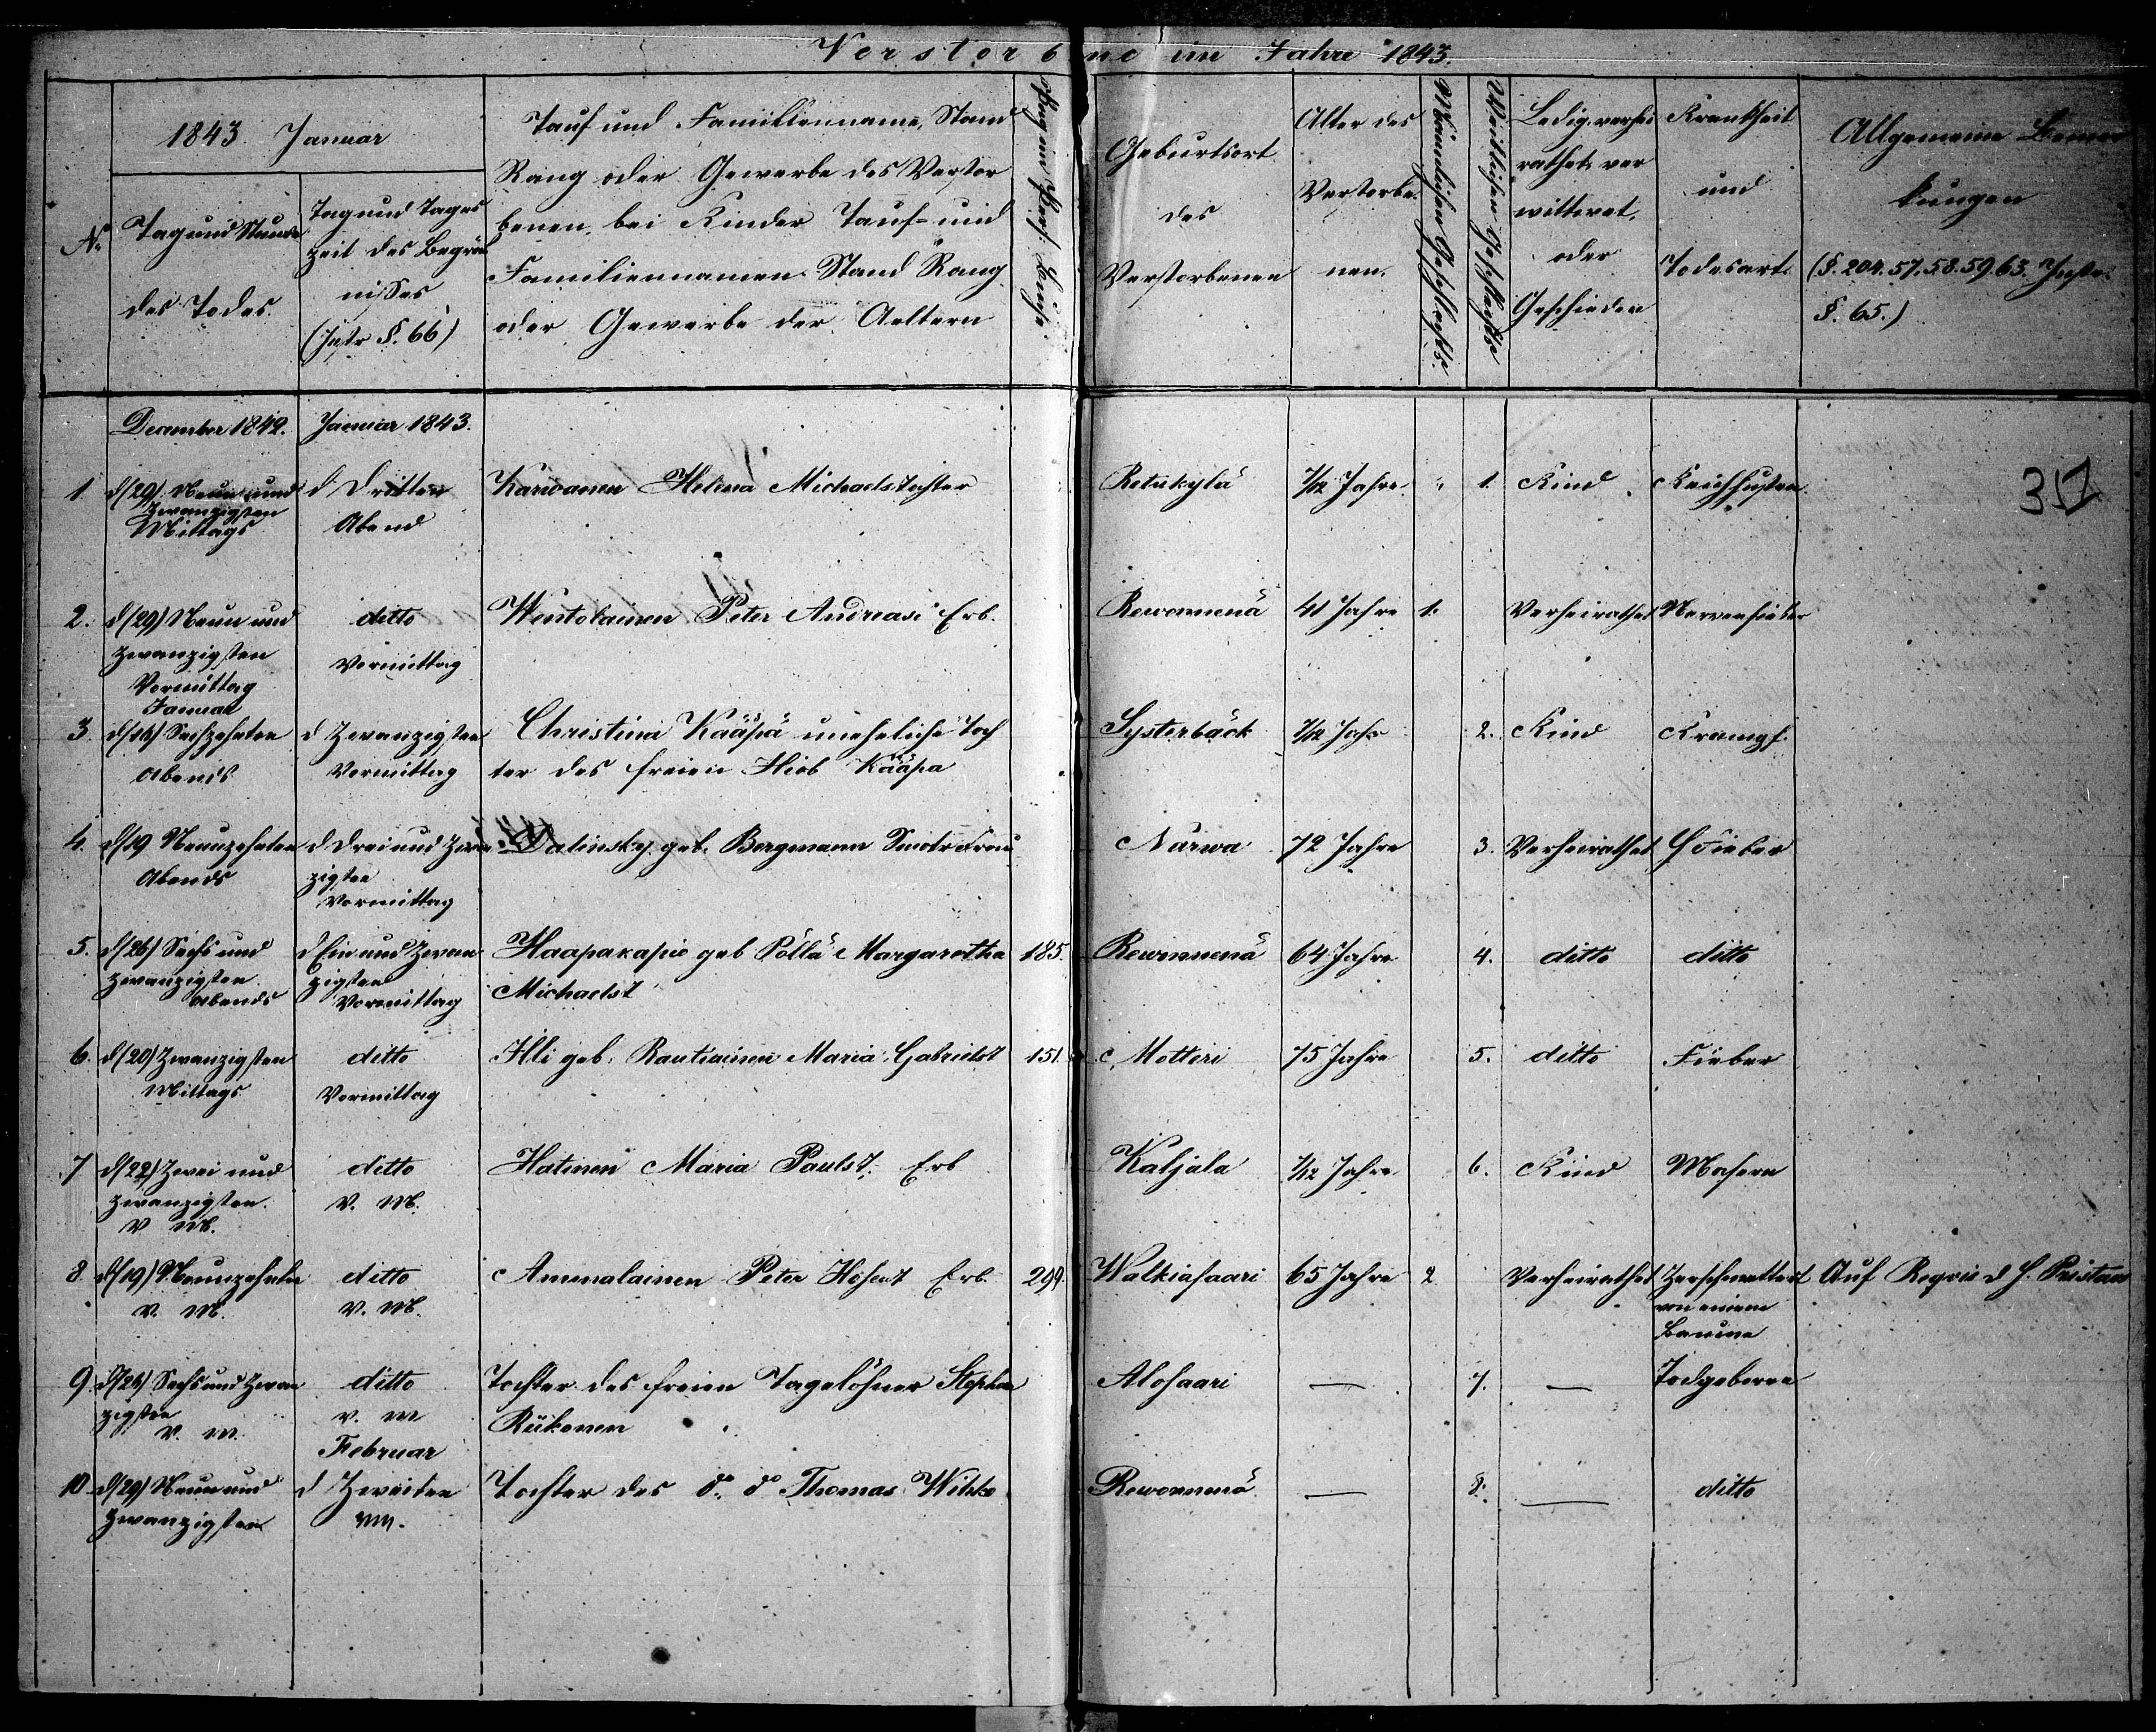 Verstorbene im Jahre 1843.
1843. Januar
No
Tag und Stunde
des Todes.
Tag und Tages
zeit des Begräb
nisses
(Instr §. 66)
Tauf und Familienname, Stand
Rang oder Gewerbe des Verstor
benen, bei Kinder Tauf- und
Familiennamen Stand Rang
oder Gewerbe der Aeltern
Geburtsort
des
Verstorbenen
Alter des
Verstorbe.
nen.
Männlichen Geschlechts.
Weiblichen Geschlechts
Ledig, verhei
rathet, ver
wittwet,
oder
Geschieden
Krankheit
und
Todesart.
Allgemeine Bemer
kungen
(§. 204. 57. 58. 59. 63. Instr.
§. 65.)
December 1842. Januar 1843.
1. d (29) Neun und zwanzigsten Mittags
d Dritten Abend
Karwanen Helena Michaelstochter
Retukylä 7/12 Jahre " 1. Kind Keichhusten
317
2. d (29) Neun und zwanzigsten Vormittag
ditto Vormittag
Wentolainen Peter Andreas: Erb.
Rewonnenä 41 Jahre 1. Verheirathet Nervenfieber
Januar
3. d (16) Sechszehnten Abends
d Zwanzigsten Vormittag
Christina Kääpä uneheliche Toch
ter des freien Hiob Kääpa
Systerbäck 7/12 Jahr 2. Kind Krampf.
4. d (19 Neunzehnten Abends
d drei und zwan zigsten Vormittag
Dalinsky geb. Bergmann
Narwa 72 Jahre 3. Verheirathet Fieber
5. d (26) Sechs und zwanzigsten Abends
d Ein und zwan zigsten Vormittag
Haapakapio geb Pöllä Margaretha 185.
Michaelst
Rewonnenä 64 Jahre 4. ditto ditto
6. d (20) Zwanzigsten Mittags
ditto Vormittag
Illi geb. Rautiainen Maria Gabrielst 151.
Motteri 75 Jahre 5. ditto Fieber
7 d (22) Zwei und zwanzigsten. V M.
ditto V. M.
Hatinen Maria Paulst. Erb
Kaljala 7/12 Jahre 6. Kind Masern
8. d (19) Neunzehnten V. M.
ditto V. M.
Ammalainen Peter Erb. 299.
Walkiasaari 65 Jahre 2 Verheirathet Zerschmettert von einem Baume Auf d H. Pristaw
9. d (26) Sechs und zwan zigsten V. M.
ditto V. M
Tochter des freien Tagelöhner Stephan
Rükonen
Alosaari — 7. — Todgeboren
Februar
10 d (29) Neun und zwanzigsten
d Zweiten VM.
Tochter des do. do Thomas Wihko
Rewonnenä — 8. — ditto